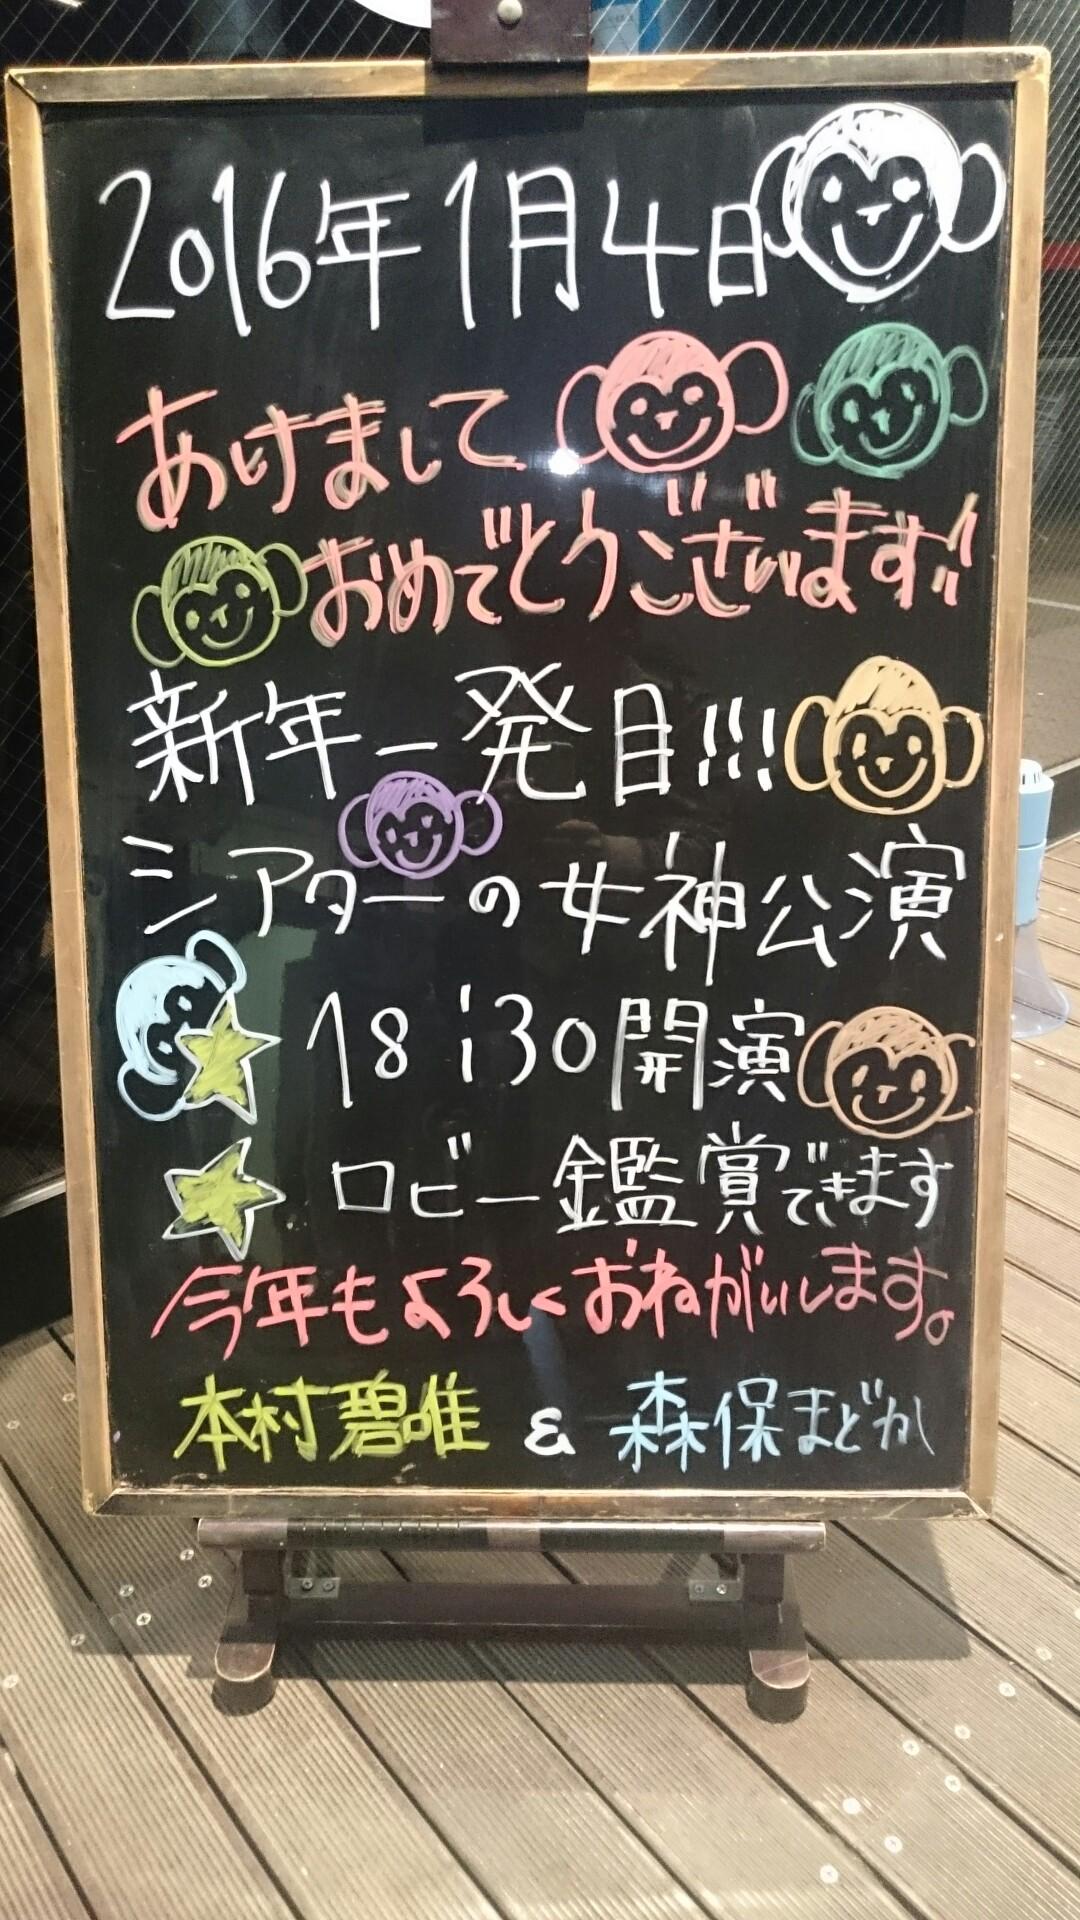 2016年1月4日
あけまして
おめでとうございます!!
新年一発目!!!
シアターの女神公演
18:30開演
ロビー鑑賞できます
今年もよろしくおねがいします。
本村碧唯 & 森保まどか